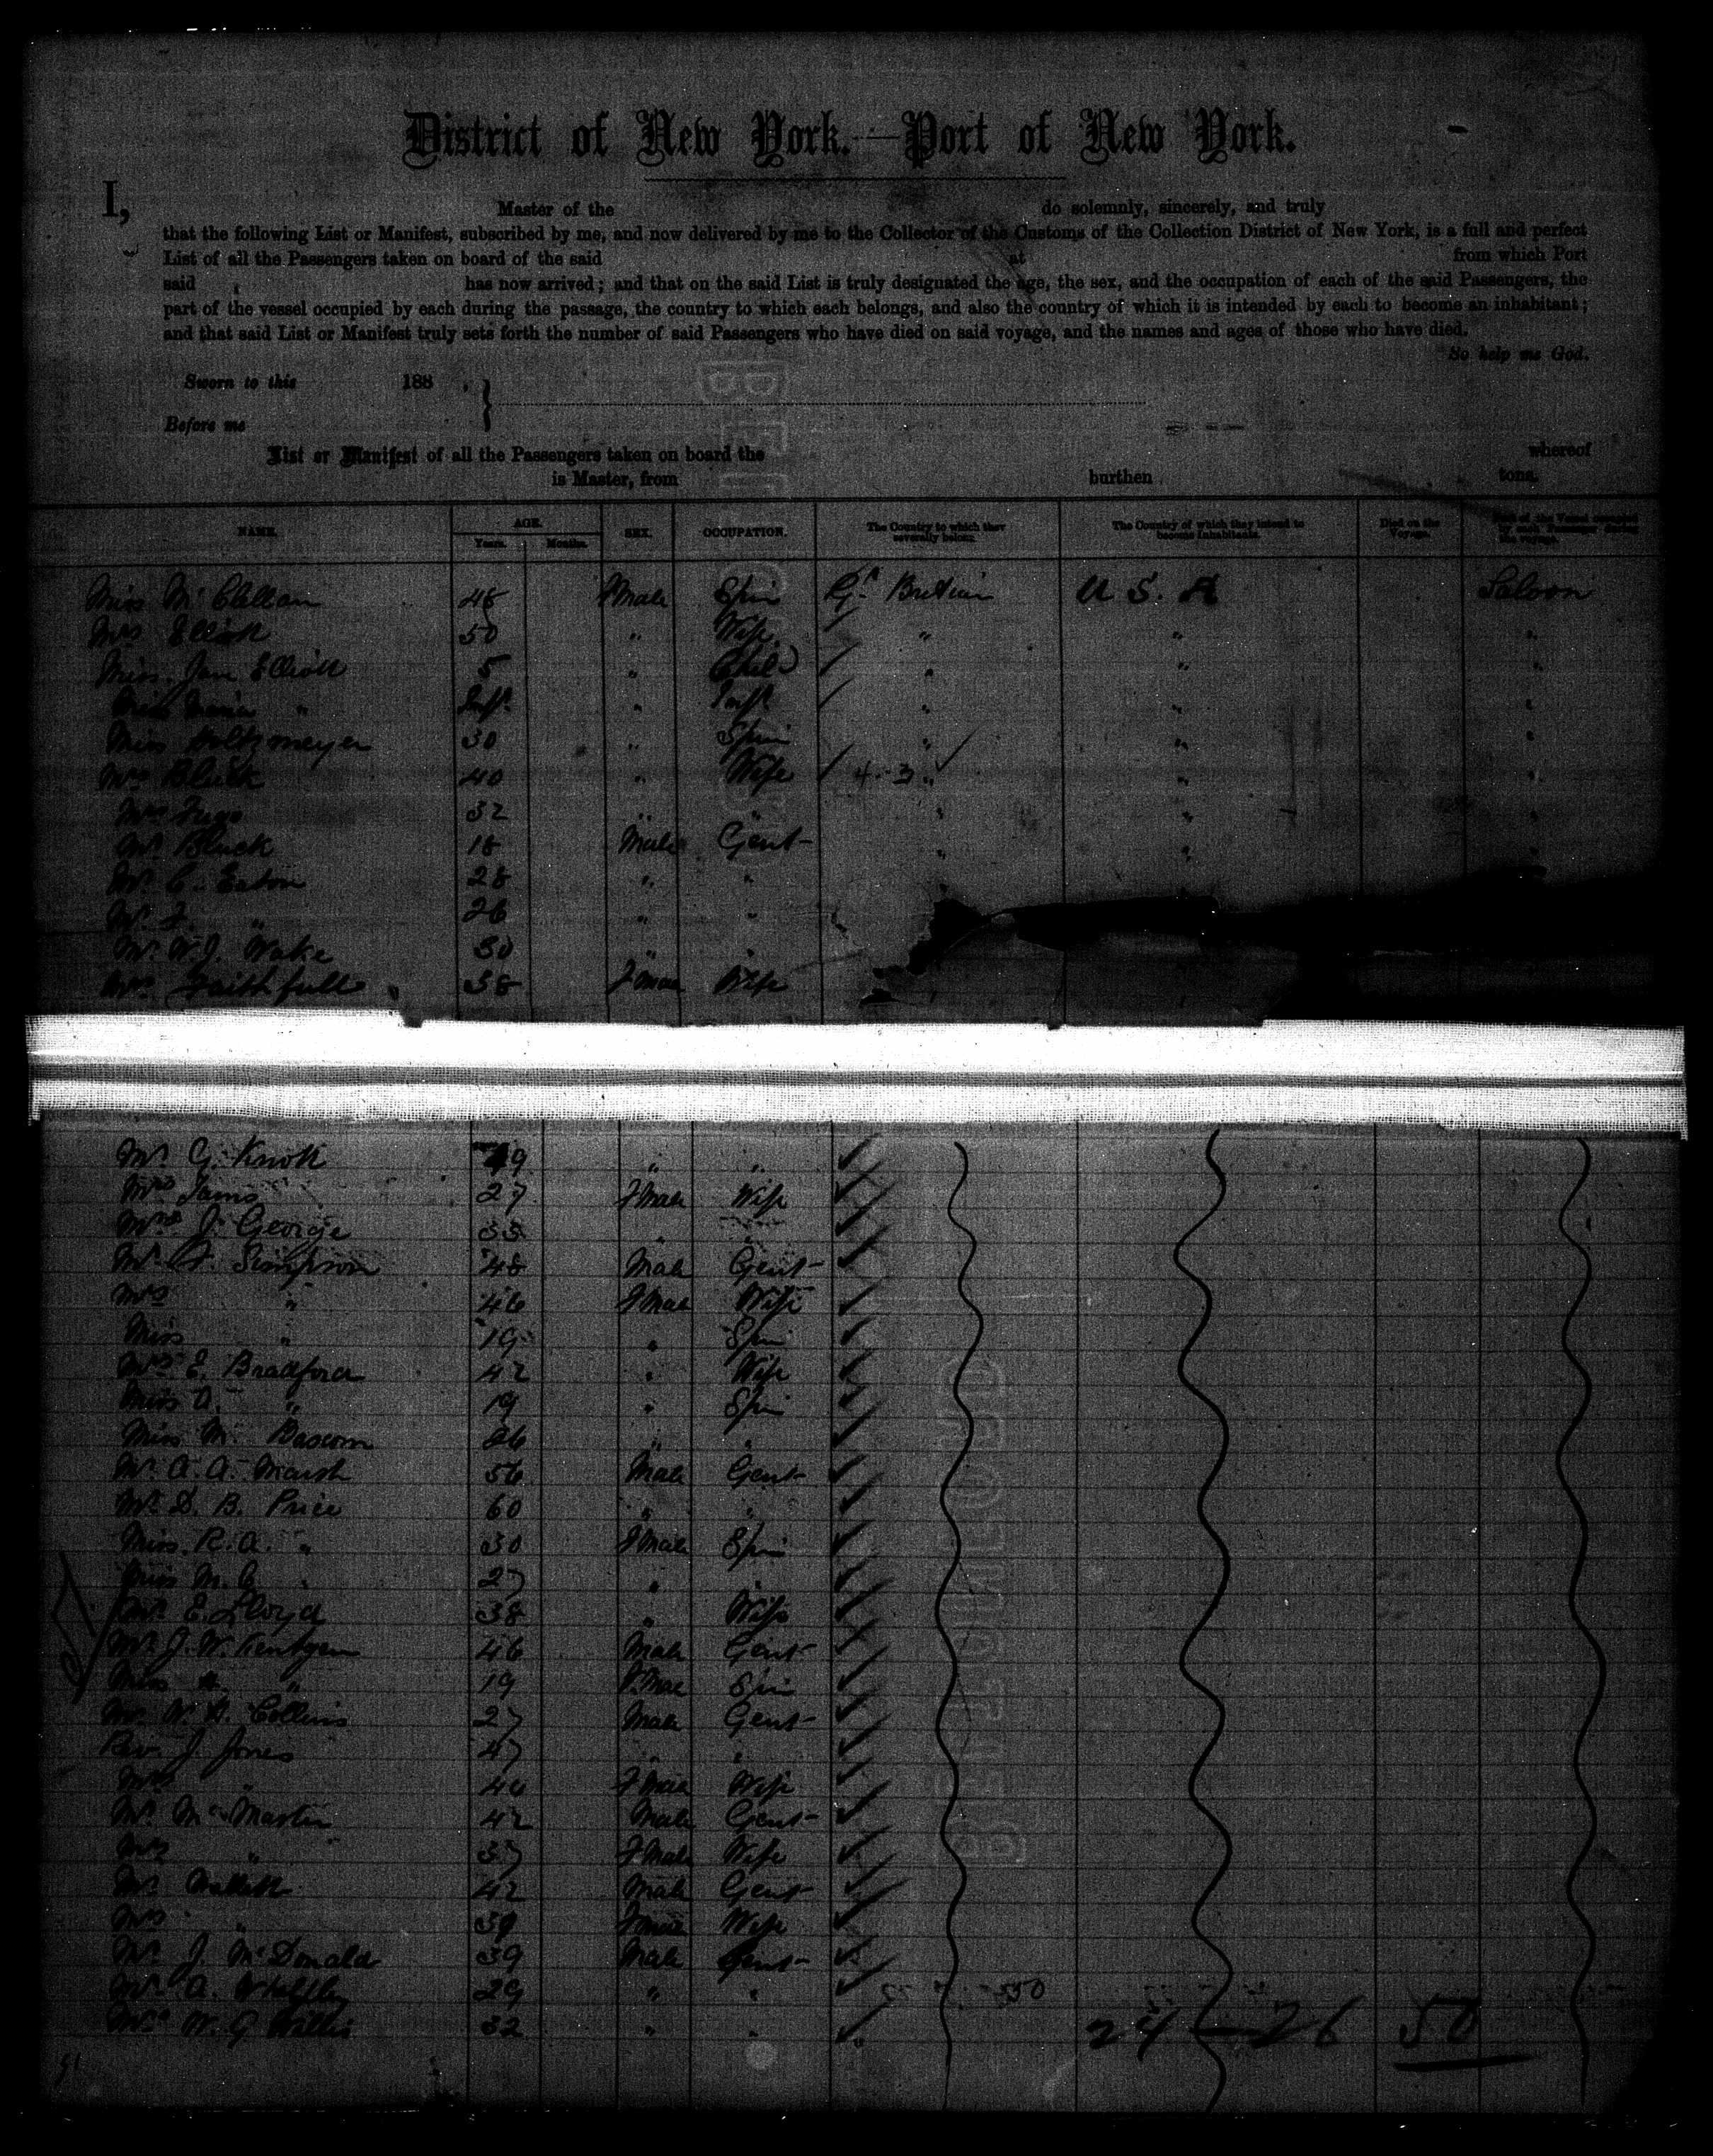 District of New York.—Port of New York.
I, Master of the do solemnly, sincerely, and truly
that the following List or Manifest, subscribed by me, and now delivered by me to the Collector of the Customs of the Collection District of New York, is a full and perfect
List of all the Passengers taken on board of the said at from which Port
said has now arrived; and that on the said List is truly designated the age, the sex, and the occupation of each of the said Passengers, the
part of the vessel occupied by each during the passage, the country to which each belongs, and also the country of which it is intended by each to become an inhabitant;
and that said List or Manifest truly sets forth the number of said Passengers who have died on said voyage, and the names and ages of those who have died.
So help me God.
Sworn to this 188 ,
Before me
List or Manifest of all the Passengers taken on board the whereof
is Master, from burthen tons.
NAME. AGE. SEX. OCCUPATION. The Country to which they severally belong. The Country of which they intend to become Inhabitants. Died on the Voyage. Part of the Vessel occupied by each Passenger during the voyage.
Years. Months.
Miss McClellan 48 Spin Gt Britain U S. A Saloon
Mrs Elliott 50 " Wife " " "
Miss Jane Elliott 5 " Child " " "
Miss " Inft " Inft " " "
Miss Holtzmeyer 30 " Spin " " "
Mrs Black 40 " Wife 4-3 " " "
Mrs 32 " " " " "
Mr Black 18 Male Gent " " "
Mr C. Eaton 28 " " "
Mr F. " 26 " "
Mr W. J. Wake 30 " "
Mrs Faithfull 38 Fmale Wife
Mr G. Knott 49 " "
Mrs Jams 27 Fmale Wife
Mrs J. George 33 " "
Mr Simpson 48 Male Gent
Mrs " 46 Fmale Wife
Miss " 19 " Spin
Mrs E. Bradford 42 " Wife
Miss A. " 19 " Spin
Miss M. Bascom 26 " "
Mr A. A. Marsh 56 Male Gent
Mr D. B. Price 60 " "
Miss R. A. " 30 Fmale Spin
Miss M. C. " 27 " "
E. Lloyd 38 " Wife
Mr J. W. 46 Male Gent
Miss " 19 Fmale Spin
Mr Collins 27 Male Gent
Rev. J. Jones 47 " "
Mrs " 46 Fmale Wife
Mr McMaster 42 Male Gent
Mrs " 37 Fmale Wife
Mr 42 Male Gent
Mrs " Fmale Wife
Mr J. McDonald 39 Male Gent
Mr A. 29 " " 550
W. G. Willis 32 " " 24 — 26 50